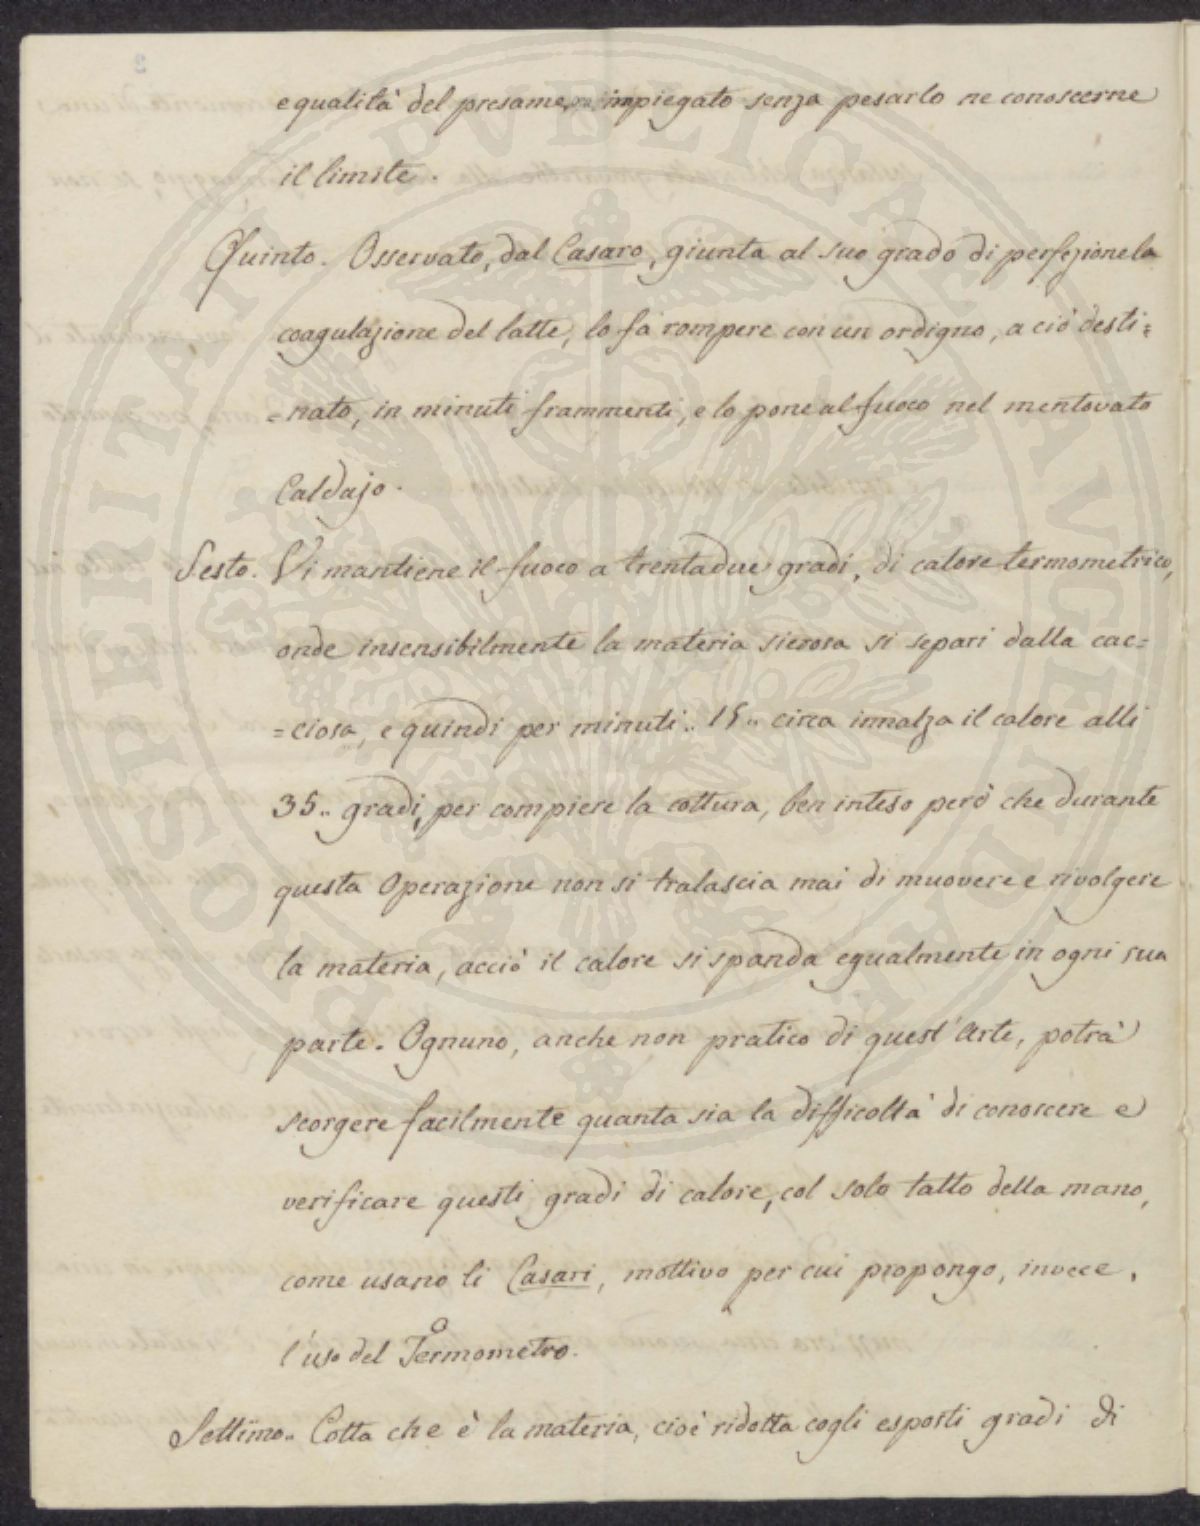 e qualità del presame, impiegato senza pesarlo ne conoscerne
il limite.
Quinto. Osservato, dal Casaro, giunta al suo grado di perfezione la
coagulazione del latte, lo fà rompere con un ordigno, a ciò desti=
=nato, in minuti frammenti, e lo pone al fuoco nel mentovato
Caldajo.
Sesto. Vi mantiene il fuoco a trentadue gradi, di calore termometrico,
onde insensibilmente la materia sierosa si separi dalla cac=
=ciosa, e quindi per minuti.. 15.. circa innalza il calore alli
35.. gradi, per compiere la cottura, ben inteso però che durante
questa Operazione non si tralascia mai di muovere e rivolgere
la materia, acciò il calore si spanda egualmente in ogni sua
parte. Ognuno, anche non pratico di quest'Arte, potrà
scorgere facilmente quanta sia la difficoltà di conoscere e
verificare questi gradi di calore, col solo tatto della mano,
come usano li Casari, mottivo per cui propongo, invece,
l'uso del Termometro.
Settimo.. Cotta che è la materia, cioè ridotta cogli esposti gradi di
PROSPERITATI PVBLICAE AVGENDAE